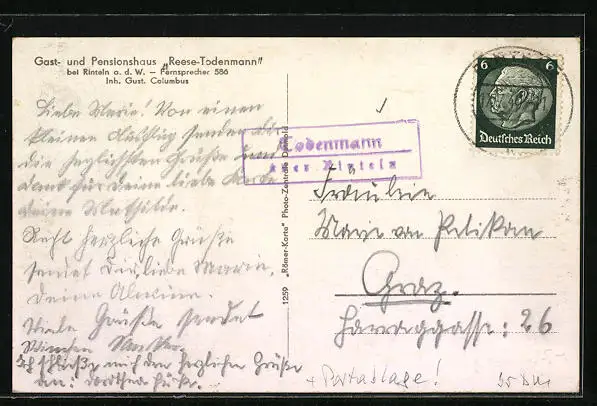 Gast- und Pensionshaus „Reese-Todenmann"
bei Rinteln a. d. W. — Fernsprecher 586
Inh. Gust. Columbus
Liebe Marie! Von einem
kleinen Ausflug senden wir
die herzlichsten Grüße und
Dank für Deine liebe Karte
Deine Mathilde.
Recht herzliche Grüße
sendet Dir, liebe Marie,
Deine
Viele Grüße sendet
Ich schließe mich den herzlichen Grüßen
an:
1259 „Römer-Karte" Photo-Zentrale Detmold
Todenmann
über Rinteln
6 6
Deutsches Reich
Fräulein
Marie von Pelikan
Graz.
26